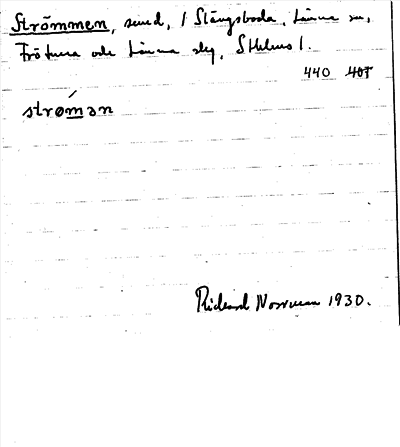 Strömmen, sund, / Stångsboda, Länna sn,
Frötuna och Länna slg, Sthlms l.
440 407
strøman
Rickard Norrman 1930.